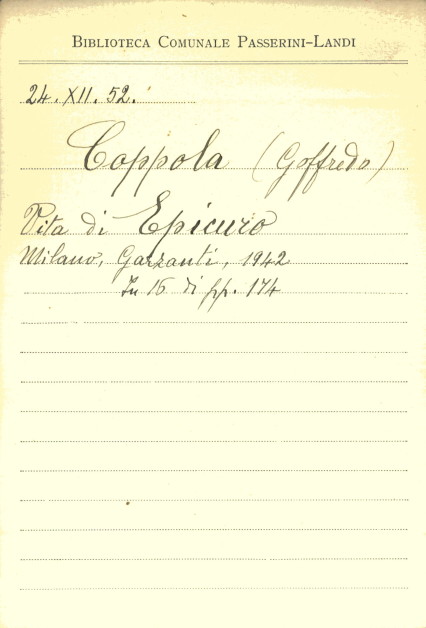 BIBLIOTECA COMUNALE PASSERINI-LANDI
24. XII. 52.
Coppola (Goffredo)
Vita di Epicuro
Milano, Garzanti, 1942
In 16 di pp. 174